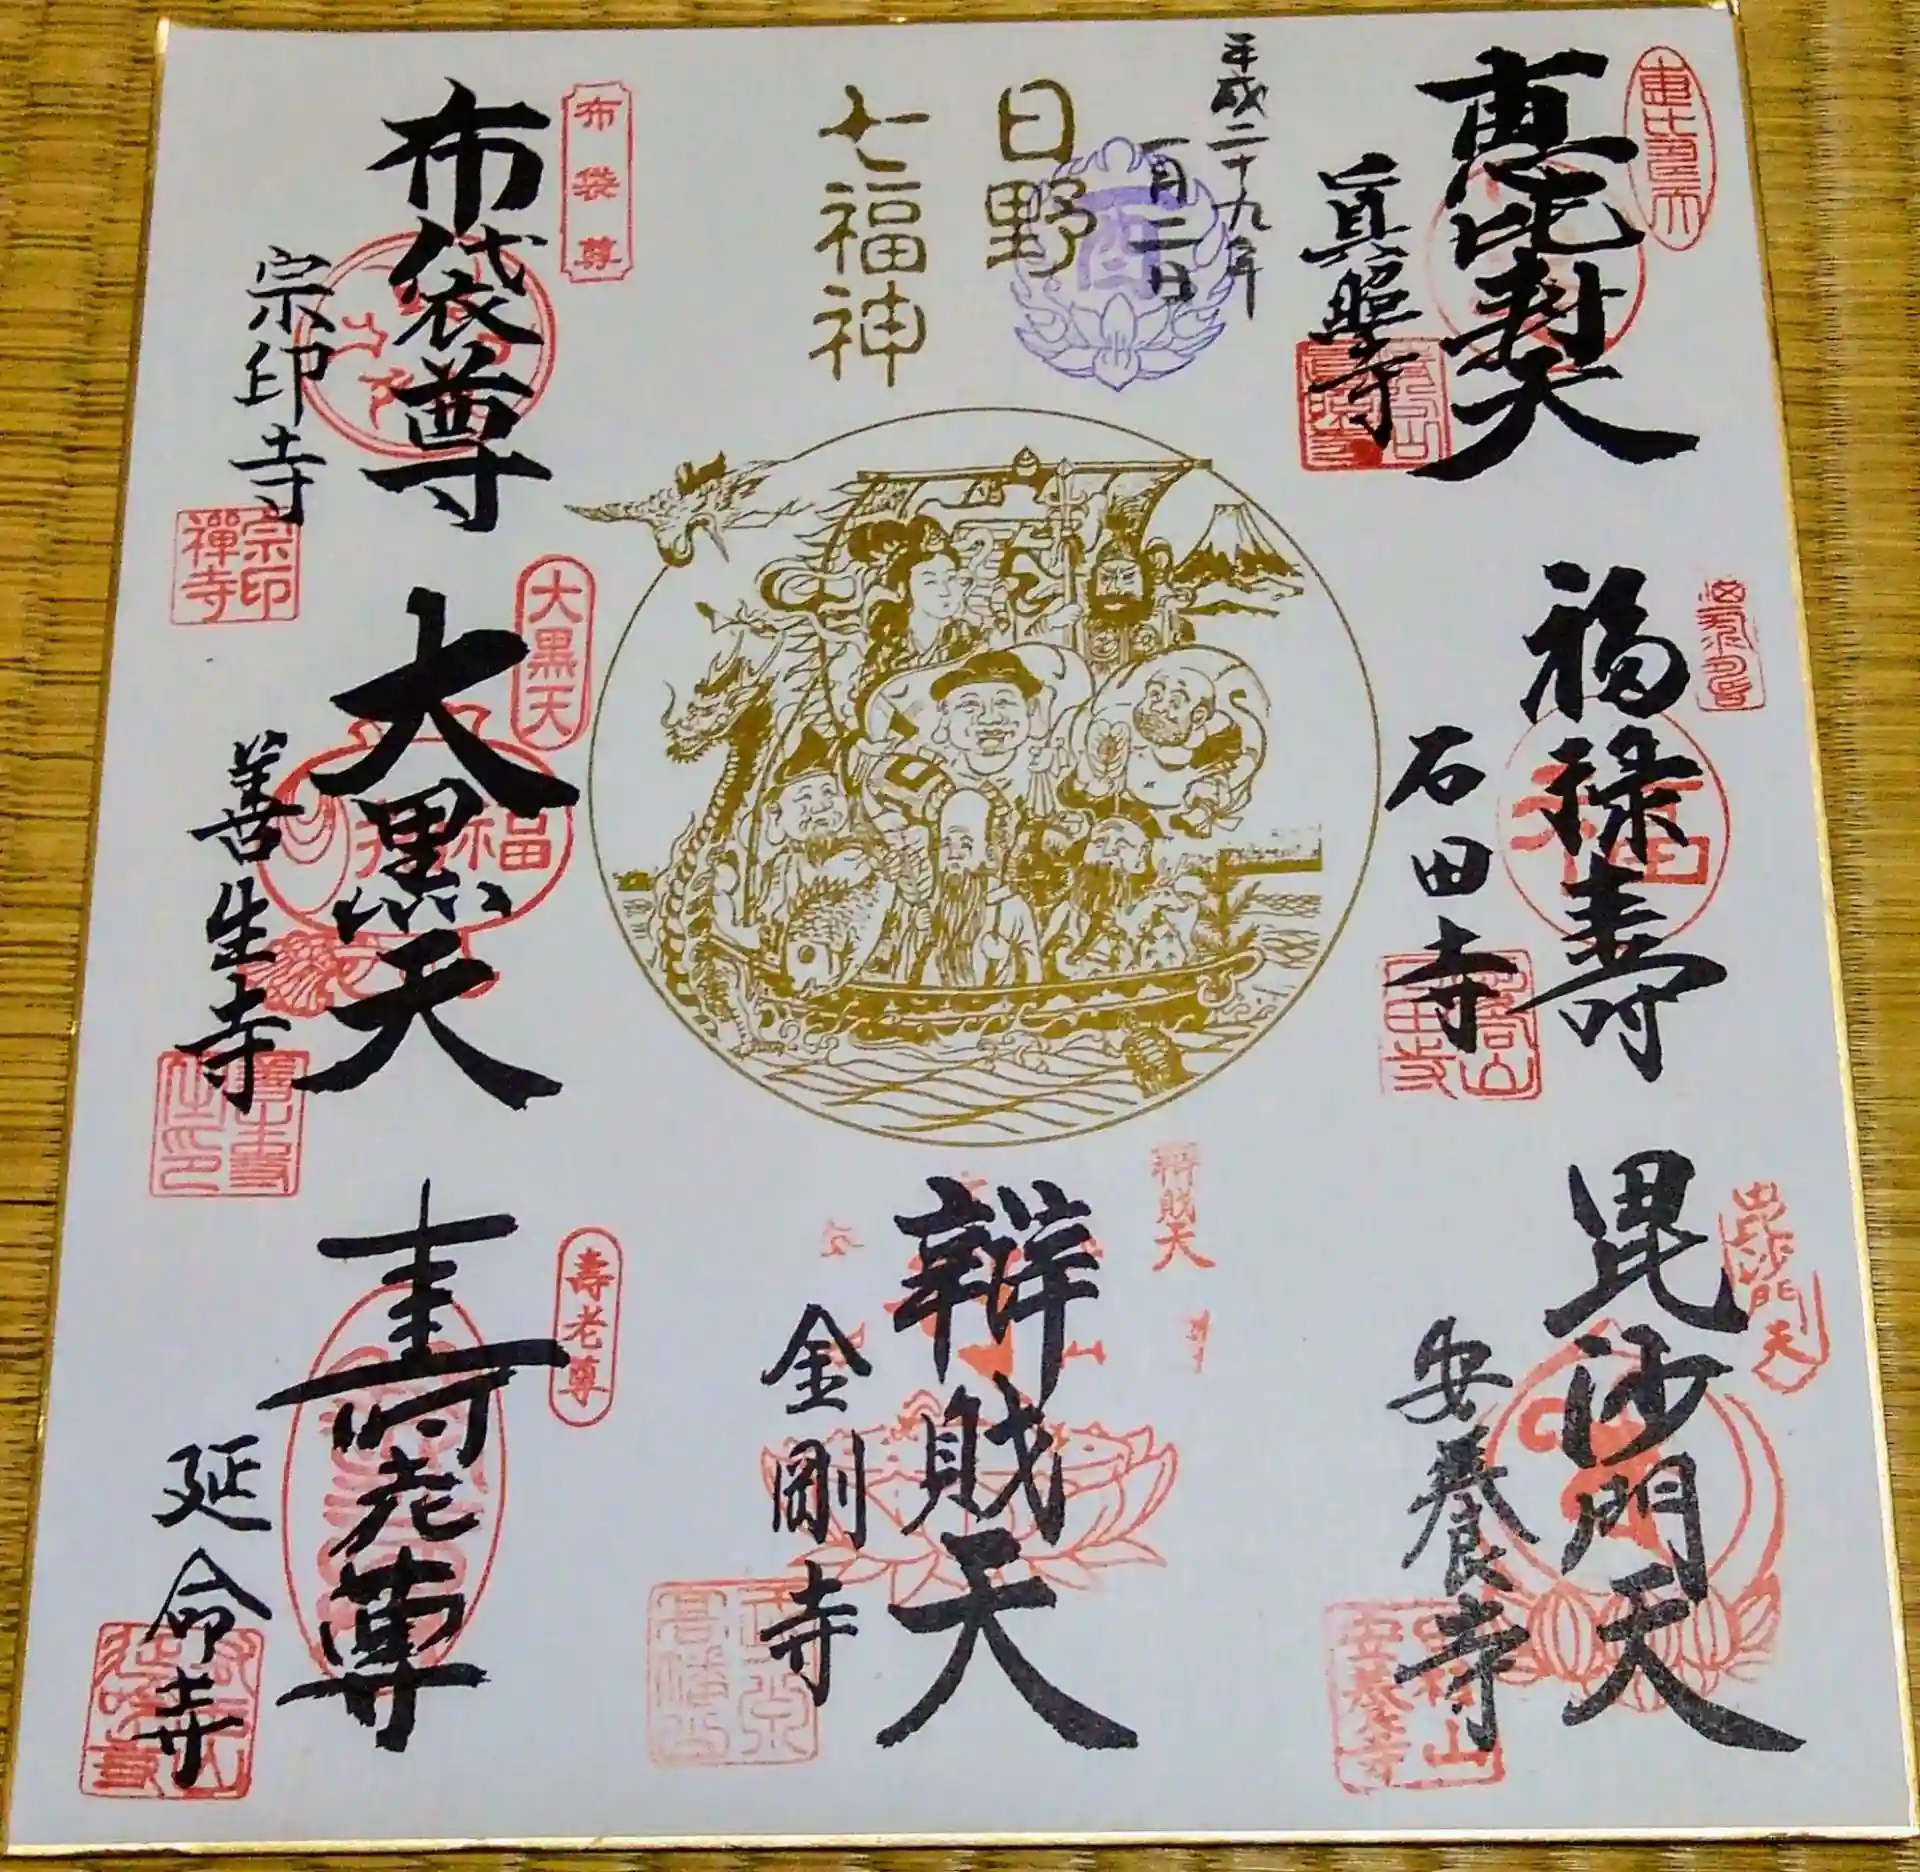 恵比寿天
真照寺
平成二十九年
一月二日
日野
七福神
布袋尊
布袋尊
宗印寺
宗印
禅寺
福禄寿
石田寺
大黒天
大黒天
福
善生寺
毘沙門天
毘沙門天
安養寺
安養寺
辯財天
辯財天
金剛寺
壽老尊
寿老尊
延命寺